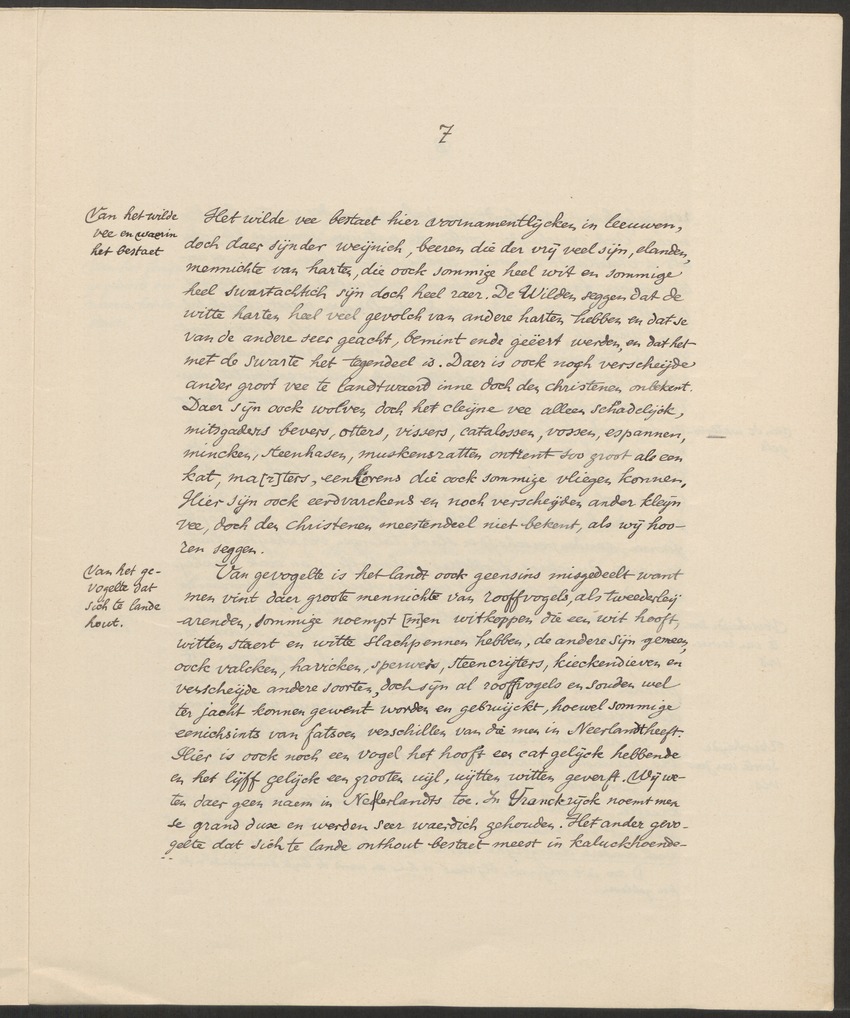 7
Van het wilde
vee en waerin
het bestaet
Het wilde vee bestaet hier voornamentlijcken in leeuwen,
doch daer sijnder weijnich, beeren die der vrij veel sijn, elanden,
mennichte van harten, die oock sommige heel wit en sommige
heel swartachtich sijn doch heel raer. De Wilden seggen dat de
witte harten heel veel gevolch van andere harten hebben en dat se
van de andere seer geacht, bemint ende geëert werden, en dat het
met de swarte het tegendeel is. Daer is oock nogh verscheijde
ander groot vee te landtwaerd inne doch den christenen onbekent.
Daer sijn oock wolven doch het cleijne vee alleen schadelijck,
mitsgaders bevers, otters, vissers, catalossen, vossen, espannen,
mincken, steenhasen, muskensratten ontrent soo groot als een
kat, ma[r]ters, eenkorens die oock sommige vliegen konnen,
Hier sijn oock eerdvarckens en noch verscheijden ander kleijn
vee, doch den christenen meestendeel niet bekent, als wij hoo-
ren seggen.
Van het ge-
vogelte dat
sich te lande
hout.
Van gevogelte is het landt oock geensins misgedeelt want
men vint daer groote mennichte van rooffvogels, als tweederleij
arenden, sommige noempt [m]en witkoppen die een wit hooft,
witten staert en witte slachpennen hebben, de andere sijn gemeen,
oock valcken, havicken, sperwers, steencrijters, kieckendieven en
verscheijde andere soorten, doch sijn al rooffvogels en souden wel
ter jacht konnen gewent worden en gebruijckt, hoewel sommige
eenichsints van fatsoen verschillen van die men in Neerlandt heeft.
Hier is oock noch een vogel het hooft een cat gelijck hebbende
en het lijff gelijck een grooten uijl, uijtten witten geverft. Wij we-
ten daer geen naem in Nederlandts toe. In Vranckrijck noemt men
se grand duxe en werden seer waerdich gehouden. Het ander gevo-
gelte dat sich te lande onthout bestaet meest in kaluckhoende-